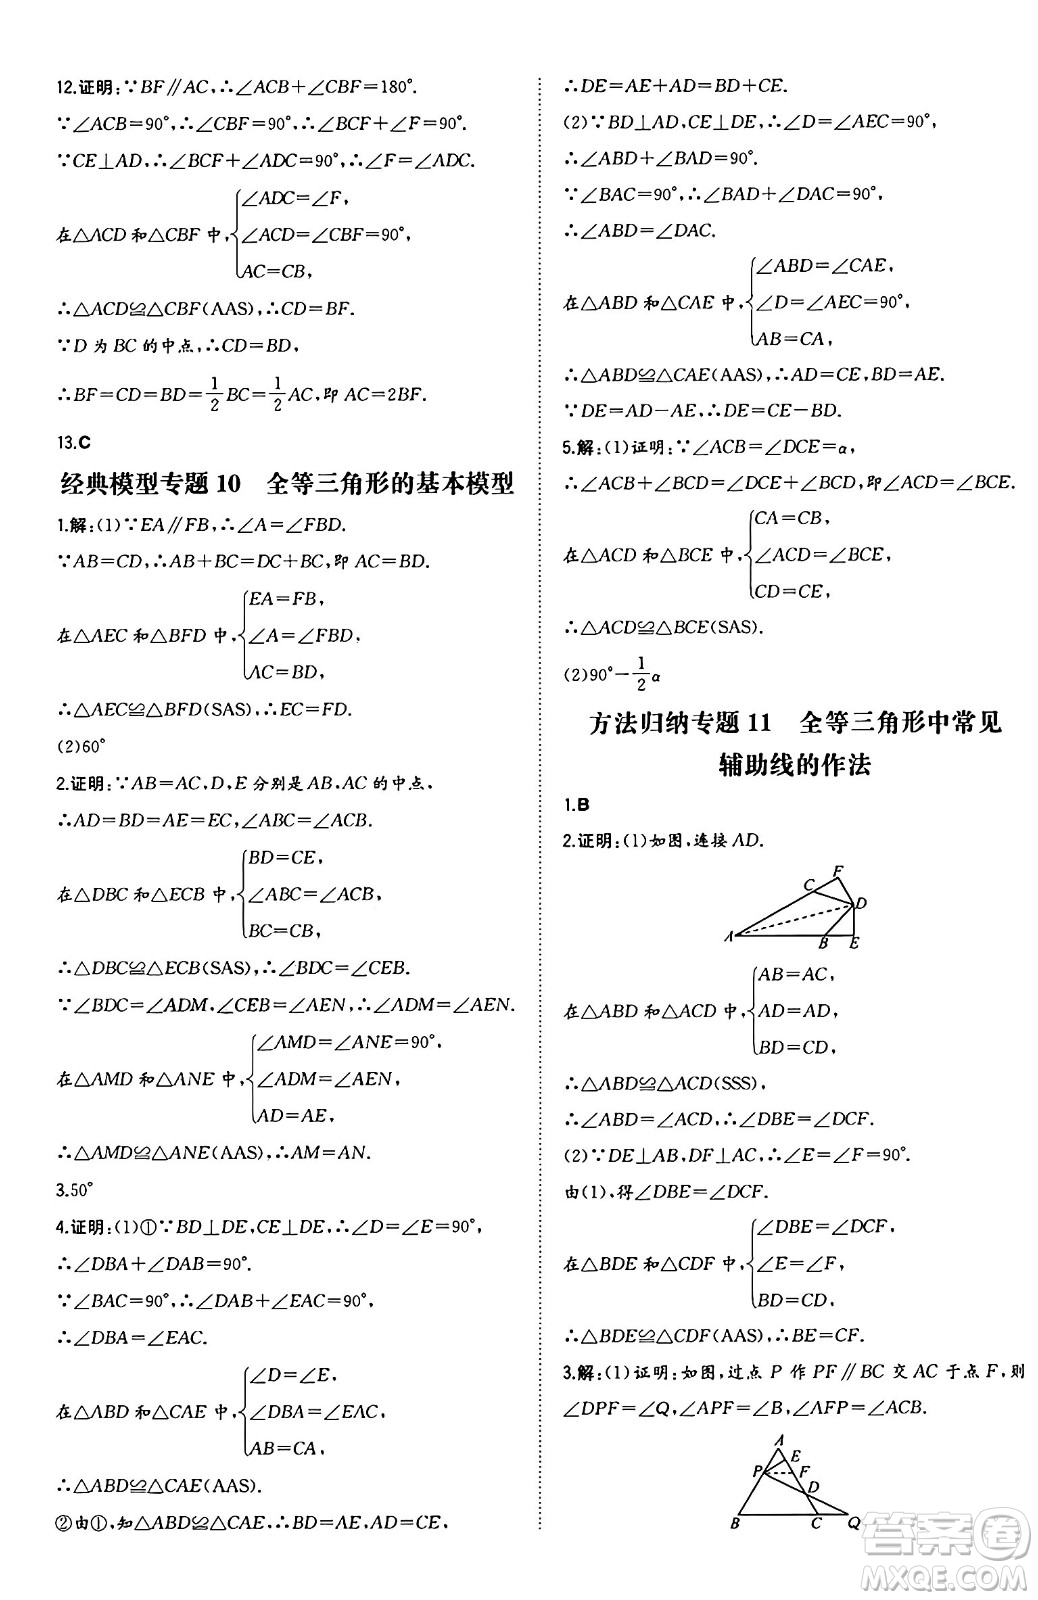 12.证明:∵BF∥AC,∴∠ACB+∠CBF=180°.
∵∠ACB=90°,∴∠CBF=90°,∴∠BCF+∠F=90°.
∵CE⊥AD,∴∠BCF+∠ADC=90°,∴∠F=∠ADC.
∠ADC=∠F,
在△ACD 和△CBF 中,
∠ACD=∠CBF=90°,
AC=CB,
∴△ACD≌△CBF(AAS),∴CD=BF.
∵D 为 BC 的中点,∴CD=BD,
∴BF=CD=BD=1/2BC=1/2AC,即 AC=2BF.
13.C
经典模型专题 10 全等三角形的基本模型
1.解:(1)∵EA∥FB,∴∠A=∠FBD.
∵AB=CD,∴AB+BC=DC+BC,即 AC=BD.
EA=FB,
在△AEC 和△BFD 中,
∠A=∠FBD,
AC=BD,
∴△AEC≌△BFD(SAS),∴EC=FD.
(2)60°
2.证明:∵AB=AC,D,E 分别是 AB,AC 的中点,
∴AD=BD=AE=EC,∠ABC=∠ACB.
BD=CE,
在△DBC 和△ECB 中,
∠ABC=∠ACB,
BC=CB,
∴△DBC≌△ECB(SAS),∴∠BDC=∠CEB.
∵∠BDC=∠ADM,∠CEB=∠AEN,∴∠ADM=∠AEN.
∠AMD=∠ANE=90°,
在△AMD 和△ANE 中,
∠ADM=∠AEN,
AD=AE,
∴△AMD≌△ANE(AAS),∴AM=AN.
3.50°
4.证明:(1)①∵BD⊥DE,CE⊥DE,∴∠D=∠E=90°,
∴∠DBA+∠DAB=90°.
∵∠BAC=90°,∴∠DAB+∠EAC=90°,
∴∠DBA=∠EAC.
∠D=∠E,
在△ABD 和△CAE 中,
∠DBA=∠EAC,
AB=CA,
∴△ABD≌△CAE(AAS).
②由①,知△ABD≌△CAE,∴BD=AE,AD=CE,
∴DE=AE+AD=BD+CE.
(2)∵BD⊥AD,CE⊥DE,∴∠D=∠AEC=90°,
∴∠ABD+∠BAD=90°.
∵∠BAC=90°,∴∠BAD+∠DAC=90°,
∴∠ABD=∠DAC.
∠ABD=∠CAE,
在△ABD 和△CAE 中,
∠D=∠AEC=90°,
AB=CA,
∴△ABD≌△CAE(AAS),∴AD=CE,BD=AE.
∵DE=AD-AE,∴DE=CE-BD.
5.解:(1)证明:∵∠ACB=∠DCE=α,
∴∠ACB+∠BCD=∠DCE+∠BCD,即∠ACD=∠BCE.
CA=CB,
在△ACD 和△BCE 中,
∠ACD=∠BCE,
CD=CE,
∴△ACD≌△BCE(SAS).
(2)90°-1/2α
方法归纳专题 11 全等三角形中常见
辅助线的作法
1.B
2.证明:(1)如图,连接 AD.
F
C
D
A
B E
AB=AC,
在△ABD 和△ACD 中,
AD=AD,
BD=CD,
∴△ABD≌△ACD(SSS),
∴∠ABD=∠ACD,∴∠DBE=∠DCF.
(2)∵DE⊥AB,DF⊥AC,∴∠E=∠F=90°.
由(1),得∠DBE=∠DCF.
∠DBE=∠DCF,
在△BDE 和△CDF 中,
∠E=∠F,
BD=CD,
∴△BDE≌△CDF(AAS),∴BE=CF.
3.解:(1)证明:如图,过点 P 作 PF∥BC 交 AC 于点 F,则
∠DPF=∠Q,∠APF=∠B,∠AFP=∠ACB.
A
E
P F
D
B C Q
答案圈
MXQE.COM